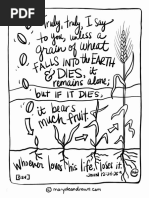 Truly, truly, I say
to you, unless a
grain of wheat
FALLS INTO the EARTH
& DIES, it
remains alone;
but IF IT DIES,
it bears
much fruit.
Whoever loves his life, loses it.
John 12:24-26
© marysteandrawn.com